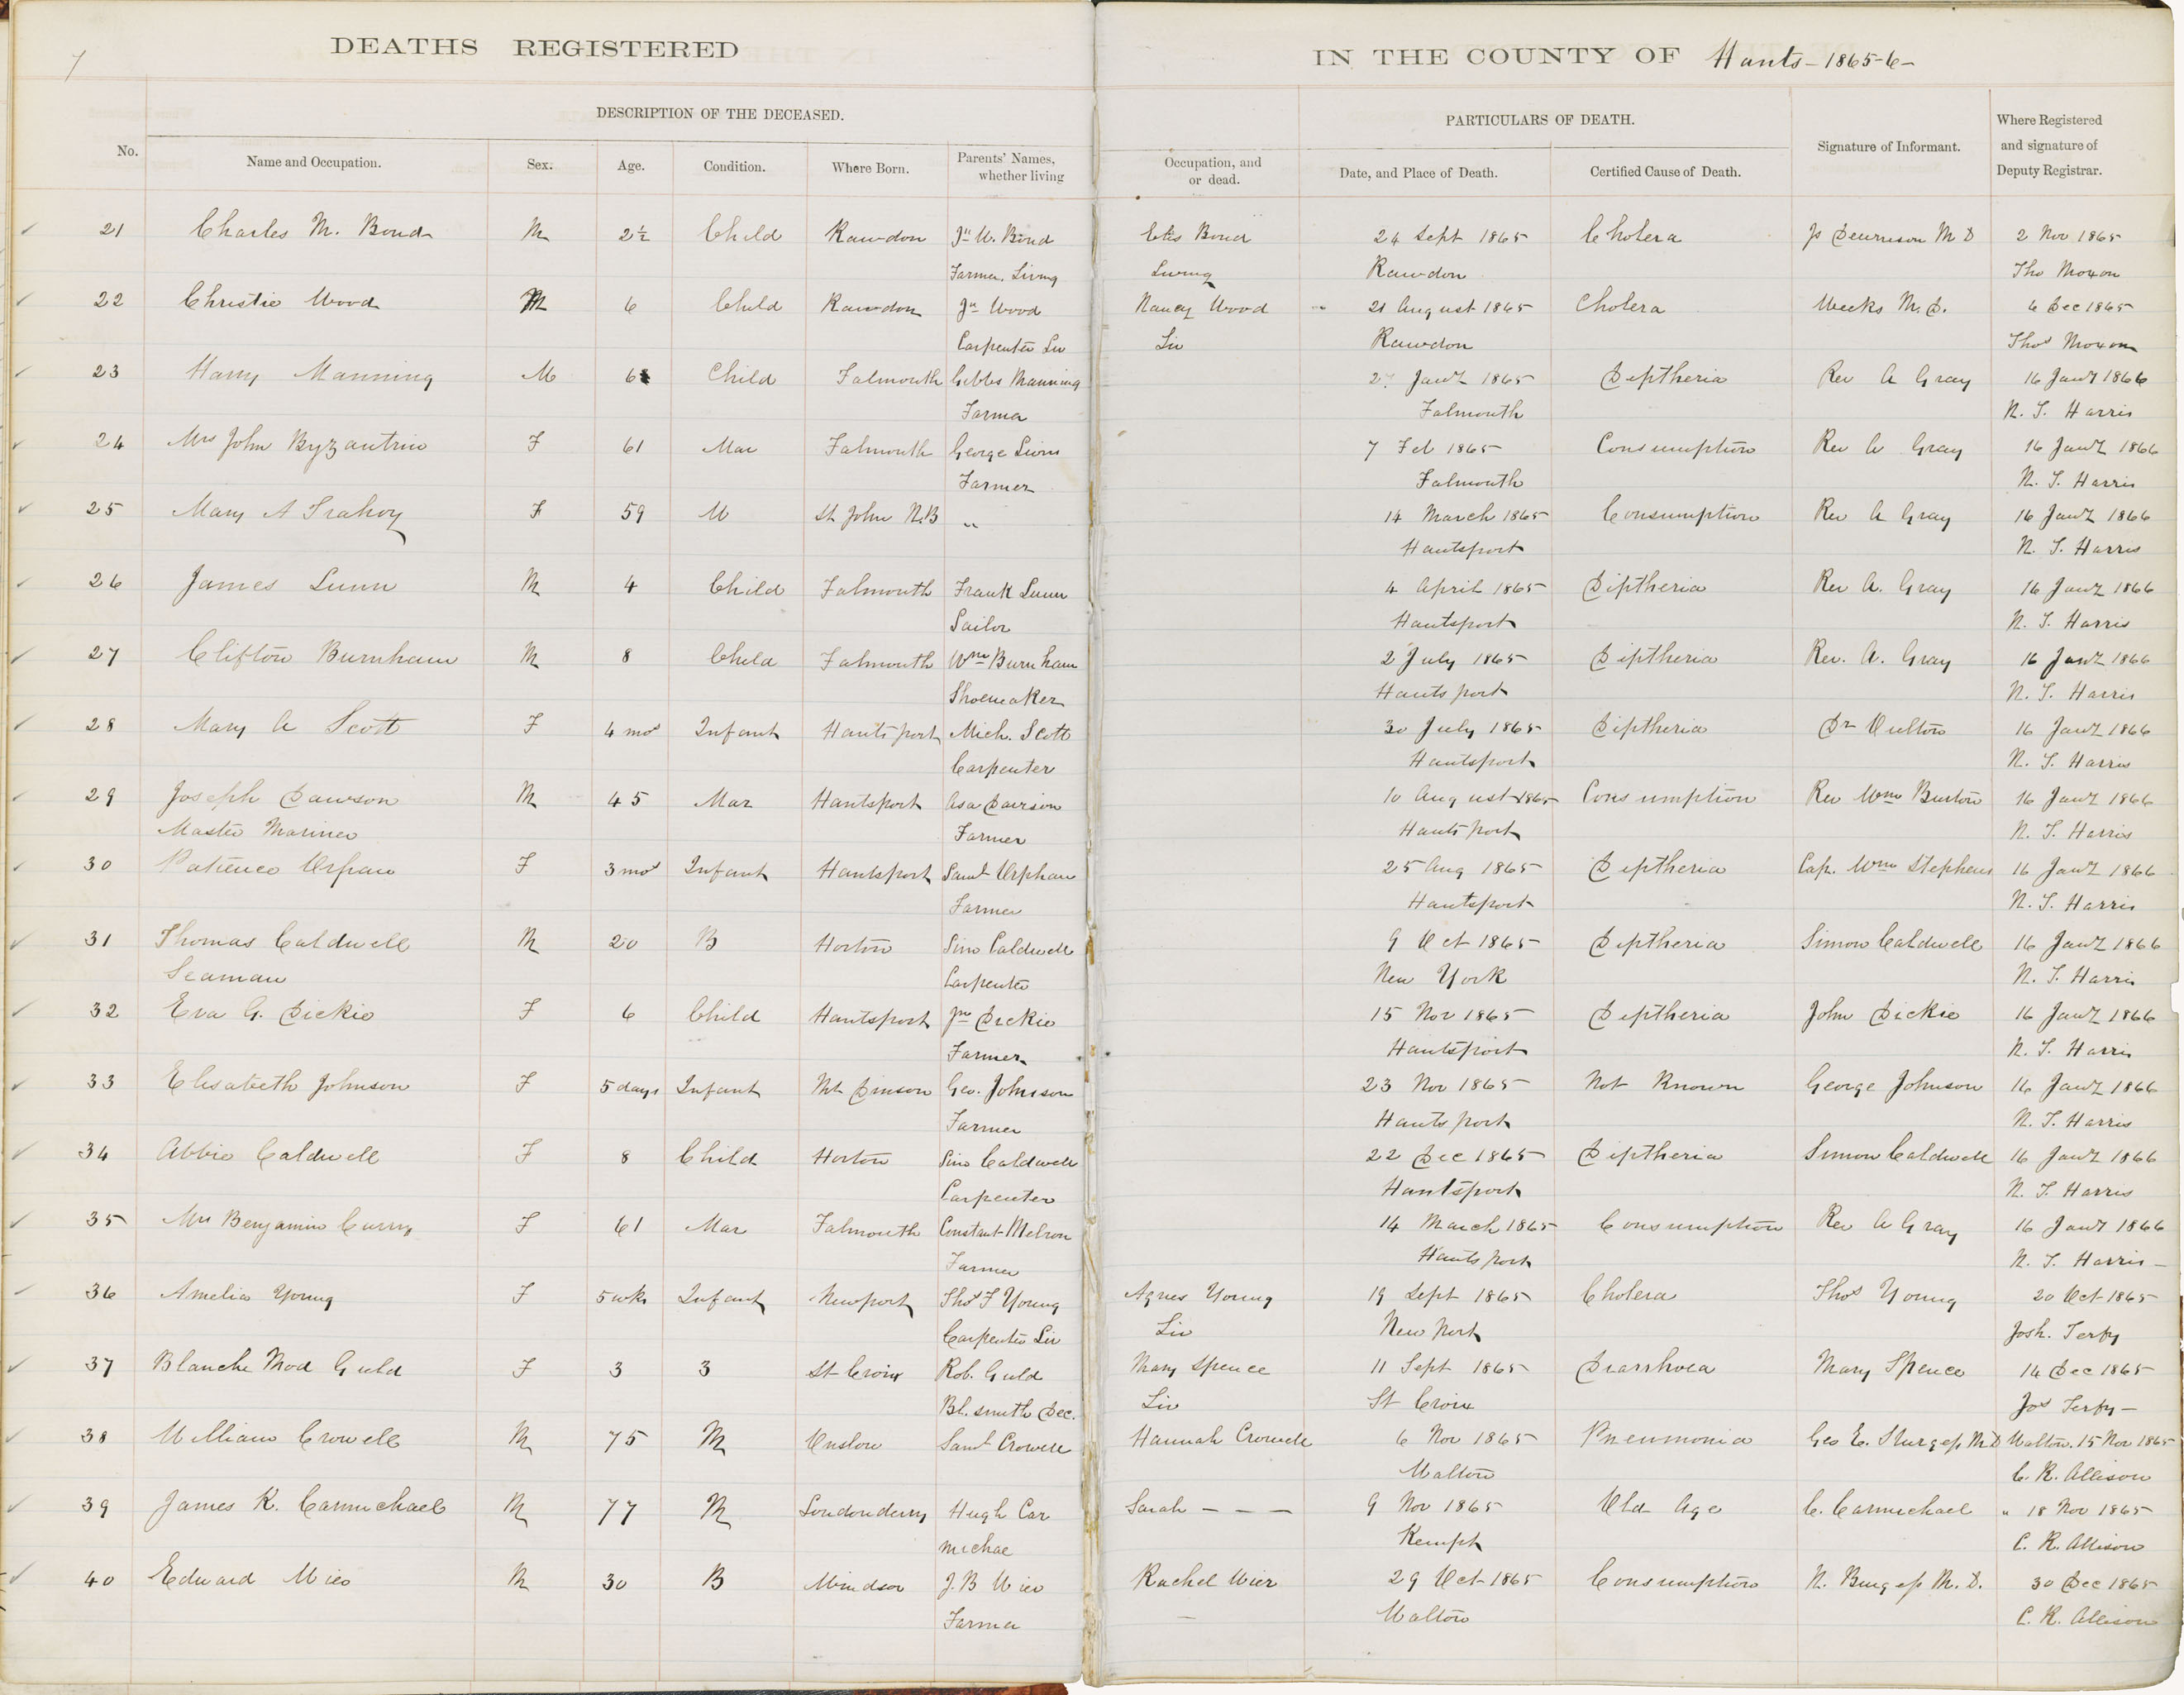 DEATHS REGISTERED IN THE COUNTY OF Hants - 1865-6 -
DESCRIPTION OF THE DECEASED. PARTICULARS OF DEATH.
No. Name and Occupation. Sex. Age. Condition. Where Born. Parents' Names, whether living Occupation, and or dead. Date, and Place of Death. Certified Cause of Death. Signature of Informant. Where Registered and signature of Deputy Registrar.
21 Charles M. Bond M 2½ Child Rawdon Jn W. Bond Bond 24 Sept 1865 Cholera M D 2 Nov 1865
Farmer. Living Living Rawdon Tho Moxon
22 Christie Wood M 6 Child Rawdon Jn Wood Nancy Wood 21 August 1865 Cholera Weeks M. D. 6 Dec 1865
Carpenter Liv Liv Rawdon Thos Moxon
23 Harry Manning M 6 Child Falmouth Gibbs Manning Jany 1865 Diptheria Rev A Gray 16 Jany 1866
Farmer Falmouth N. T. Harris
24 Mrs John Byzantrie F 61 Mar Falmouth George 7 Feb 1865 Consumption Rev A Gray 16 Jany 1866
Farmer Falmouth N. T. Harris
25 Mary A Trahoy F 59 M St John N.B " 14 March 1865 Consumption Rev A Gray 16 Jany 1866
Hantsport N. T. Harris
26 James Lunn M 4 Child Falmouth Frank Lunn 4 April 1865 Diptheria Rev A. Gray 16 Jany 1866
Sailor Hantsport N. T. Harris
27 Clifton Burnham M 8 Child Falmouth Wm Burnham 2 July 1865 Diptheria Rev. A. Gray 16 Jany 1866
Shoemaker Hantsport N. T. Harris
28 Mary A Scott F 4 mos Infant Hantsport Mich. Scott 30 July 1865 Diptheria Dr 16 Jany 1866
Carpenter Hantsport N. T. Harris
29 Joseph Dawson M 45 Mar Hantsport Asa Dawson 10 August 1865 Consumption Rev Wm Burton 16 Jany 1866
Master Mariner Farmer Hantsport N. T. Harris
30 Patience Orpan F 3 mos Infant Hantsport Saml Orphan 25 Aug 1865 Diptheria Cap. Wm Stephens 16 Jany 1866
Farmer Hantsport N. T. Harris
31 Thomas Caldwell M 20 B Horton Simo Caldwell 9 Oct 1865 Diptheria Simon Caldwell 16 Jany 1866
Seaman Carpenter New York N. T. Harris
32 Eva G. Dickie F 6 Child Hantsport Jno Dickie 15 Nov 1865 Diptheria John Dickie 16 Jany 1866
Farmer Hantsport N. T. Harris
33 Elisabeth Johnson F 5 days Infant Mt Denson Geo. Johnson 23 Nov 1865 Not Known George Johnson 16 Jany 1866
Farmer Hantsport N. T. Harris
34 Abbie Caldwell F 8 Child Horton Simo Caldwell 22 Dec 1865 Diptheria Simon Caldwell 16 Jany 1866
Carpenter Hantsport N. T. Harris
35 Mrs Benjamin Curry F 61 Mar Falmouth Constant 14 March 1865 Consumption Rev A Gray 16 Jany 1866
Farmer Hantsport N. T. Harris -
36 Amelia Young F 5 wks Infant Newport Thos F Young Agnes Young 19 Sept 1865 Cholera Thos Young 20 Oct 1865
Carpenter Liv Liv New Port Josh. Terfry
37 Blanche Mod Guld F 3 3 St Croix Rob. Guld Mary Spence 11 Sept 1865 Diarrhoea Mary Spence 14 Dec 1865
Bl. smith Dec. Liv St Croix Jos Terfry -
38 William Crowell M 75 M Onslow Saml Crowell Hannah Crowell 6 Nov 1865 Pneumonia Geo E. Sturgess M D Walton. 15 Nov 1865
Walton C. R. Allison
39 James K. Carmichael M 77 M Londonderry Hugh Car Sarah - - - 9 Nov 1865 Old Age C. Carmichael " 18 Nov 1865
michae Kempt C. R. Allison
40 Edward Wier M 30 B Windsor J. B Wier Rachel Wier 29 Oct 1865 Consumption N. Burgess M. D. 30 Dec 1865
Farmer - Walton C. R. Allison